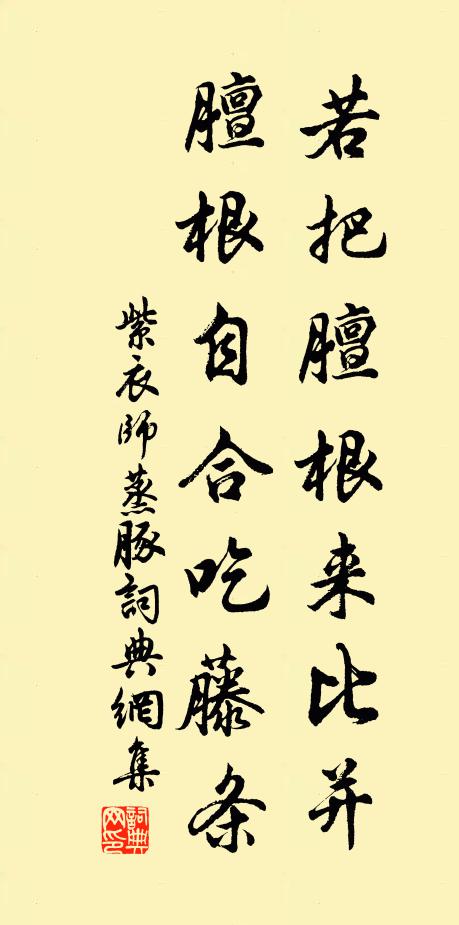 若把膻根来比并
膻根自合吃藤条
紫衣师蒸豚詞典網集
詞典网印